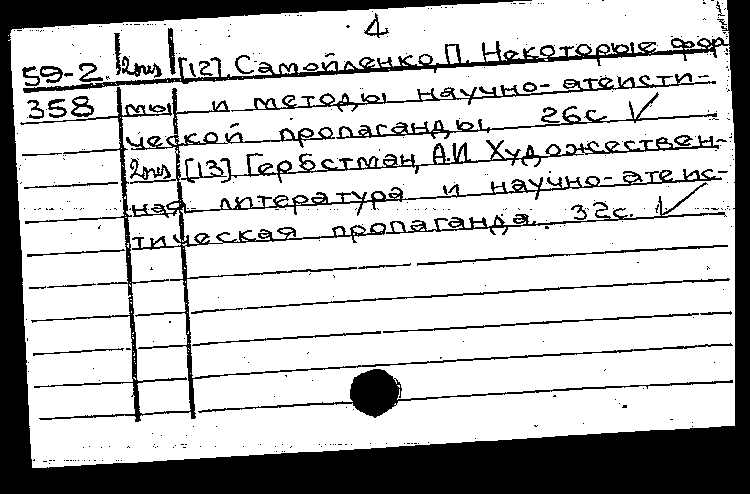 4
59-2 2 экз [12]. Самойленко, П. Некоторые фор
358 мы и методы научно-атеисти-
ческой пропаганды, 26с. ✓
2 экз [13] Гербстман, А.И. Художествен-
ная литература и научно-атеис-
тическая пропаганда. 32с. ✓